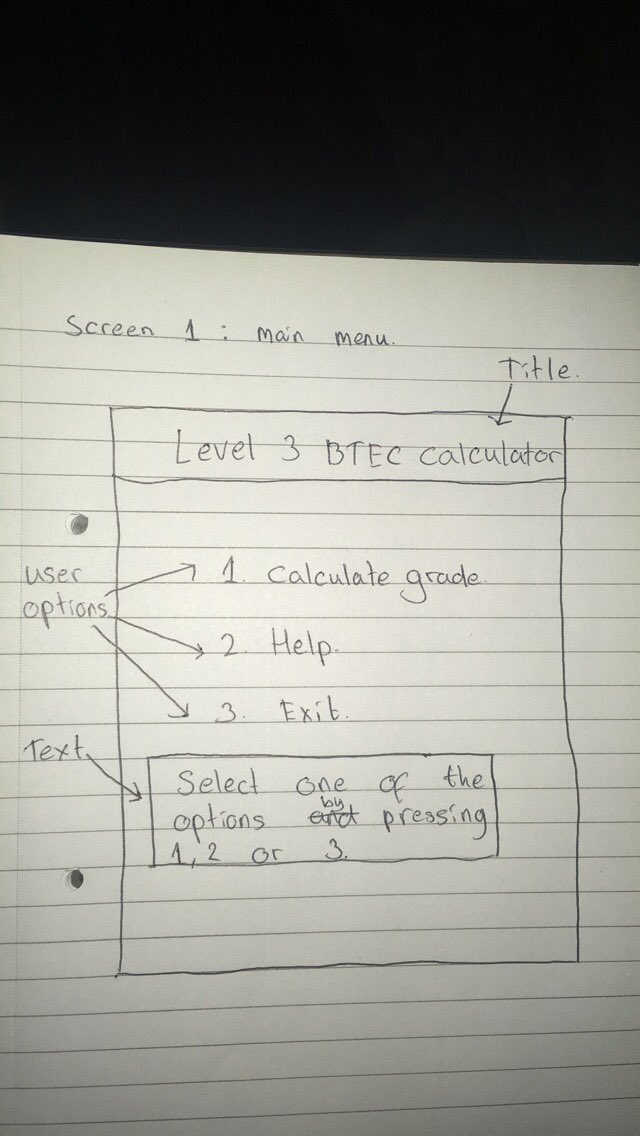 Screen 1 : main menu.
Title.
Level 3 BTEC calculator
user
options.
1. Calculate grade.
2. Help.
3. Exit.
Text
Select one of the
options and by pressing
1, 2 or 3.